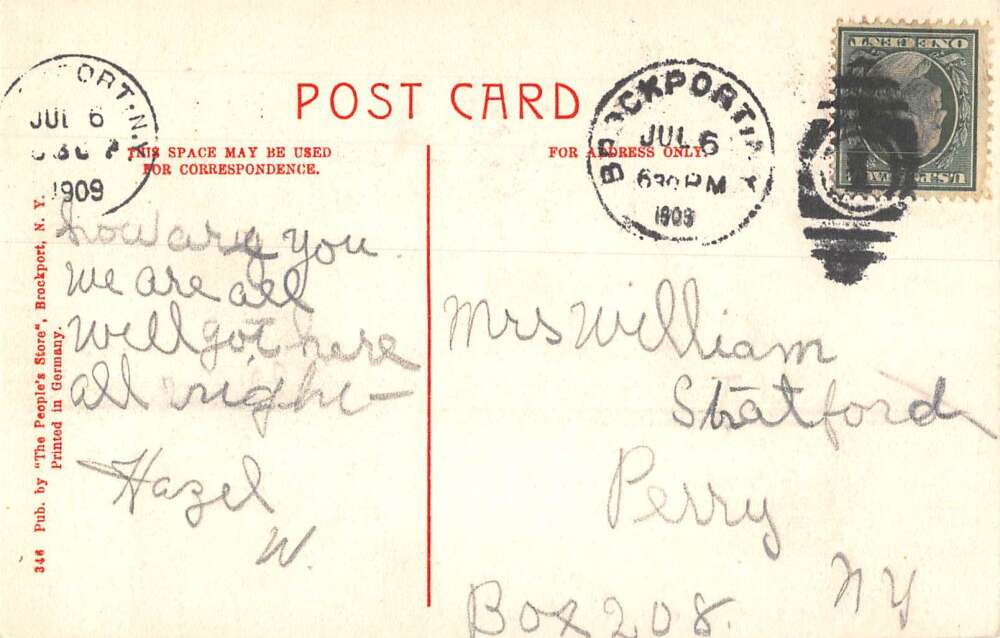 POST CARD
THIS SPACE MAY BE USED
FOR CORRESPONDENCE.
FOR ADDRESS ONLY.
ORT. N.Y.
JUL 6
1909
BROCKPORT. N.Y.
JUL 6
630 PM
1909
ONE CENT
U.S. POSTAGE
how are you
we are all
well got here
all right
Hazel
W.
Mrs William
Stratford
Perry
NY
Box 208.
346 Pub. by "The People's Store", Brockport, N. Y.
Printed in Germany.